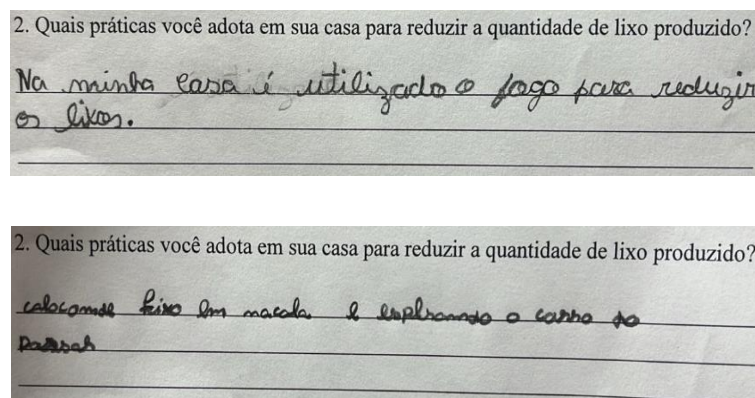 2. Quais práticas você adota em sua casa para reduzir a quantidade de lixo produzido?
Na minha casa é utilizado o fogo para reduzir
os lixos.
2. Quais práticas você adota em sua casa para reduzir a quantidade de lixo produzido?
colocamde lixo em macola e esplrando o carro do
passah